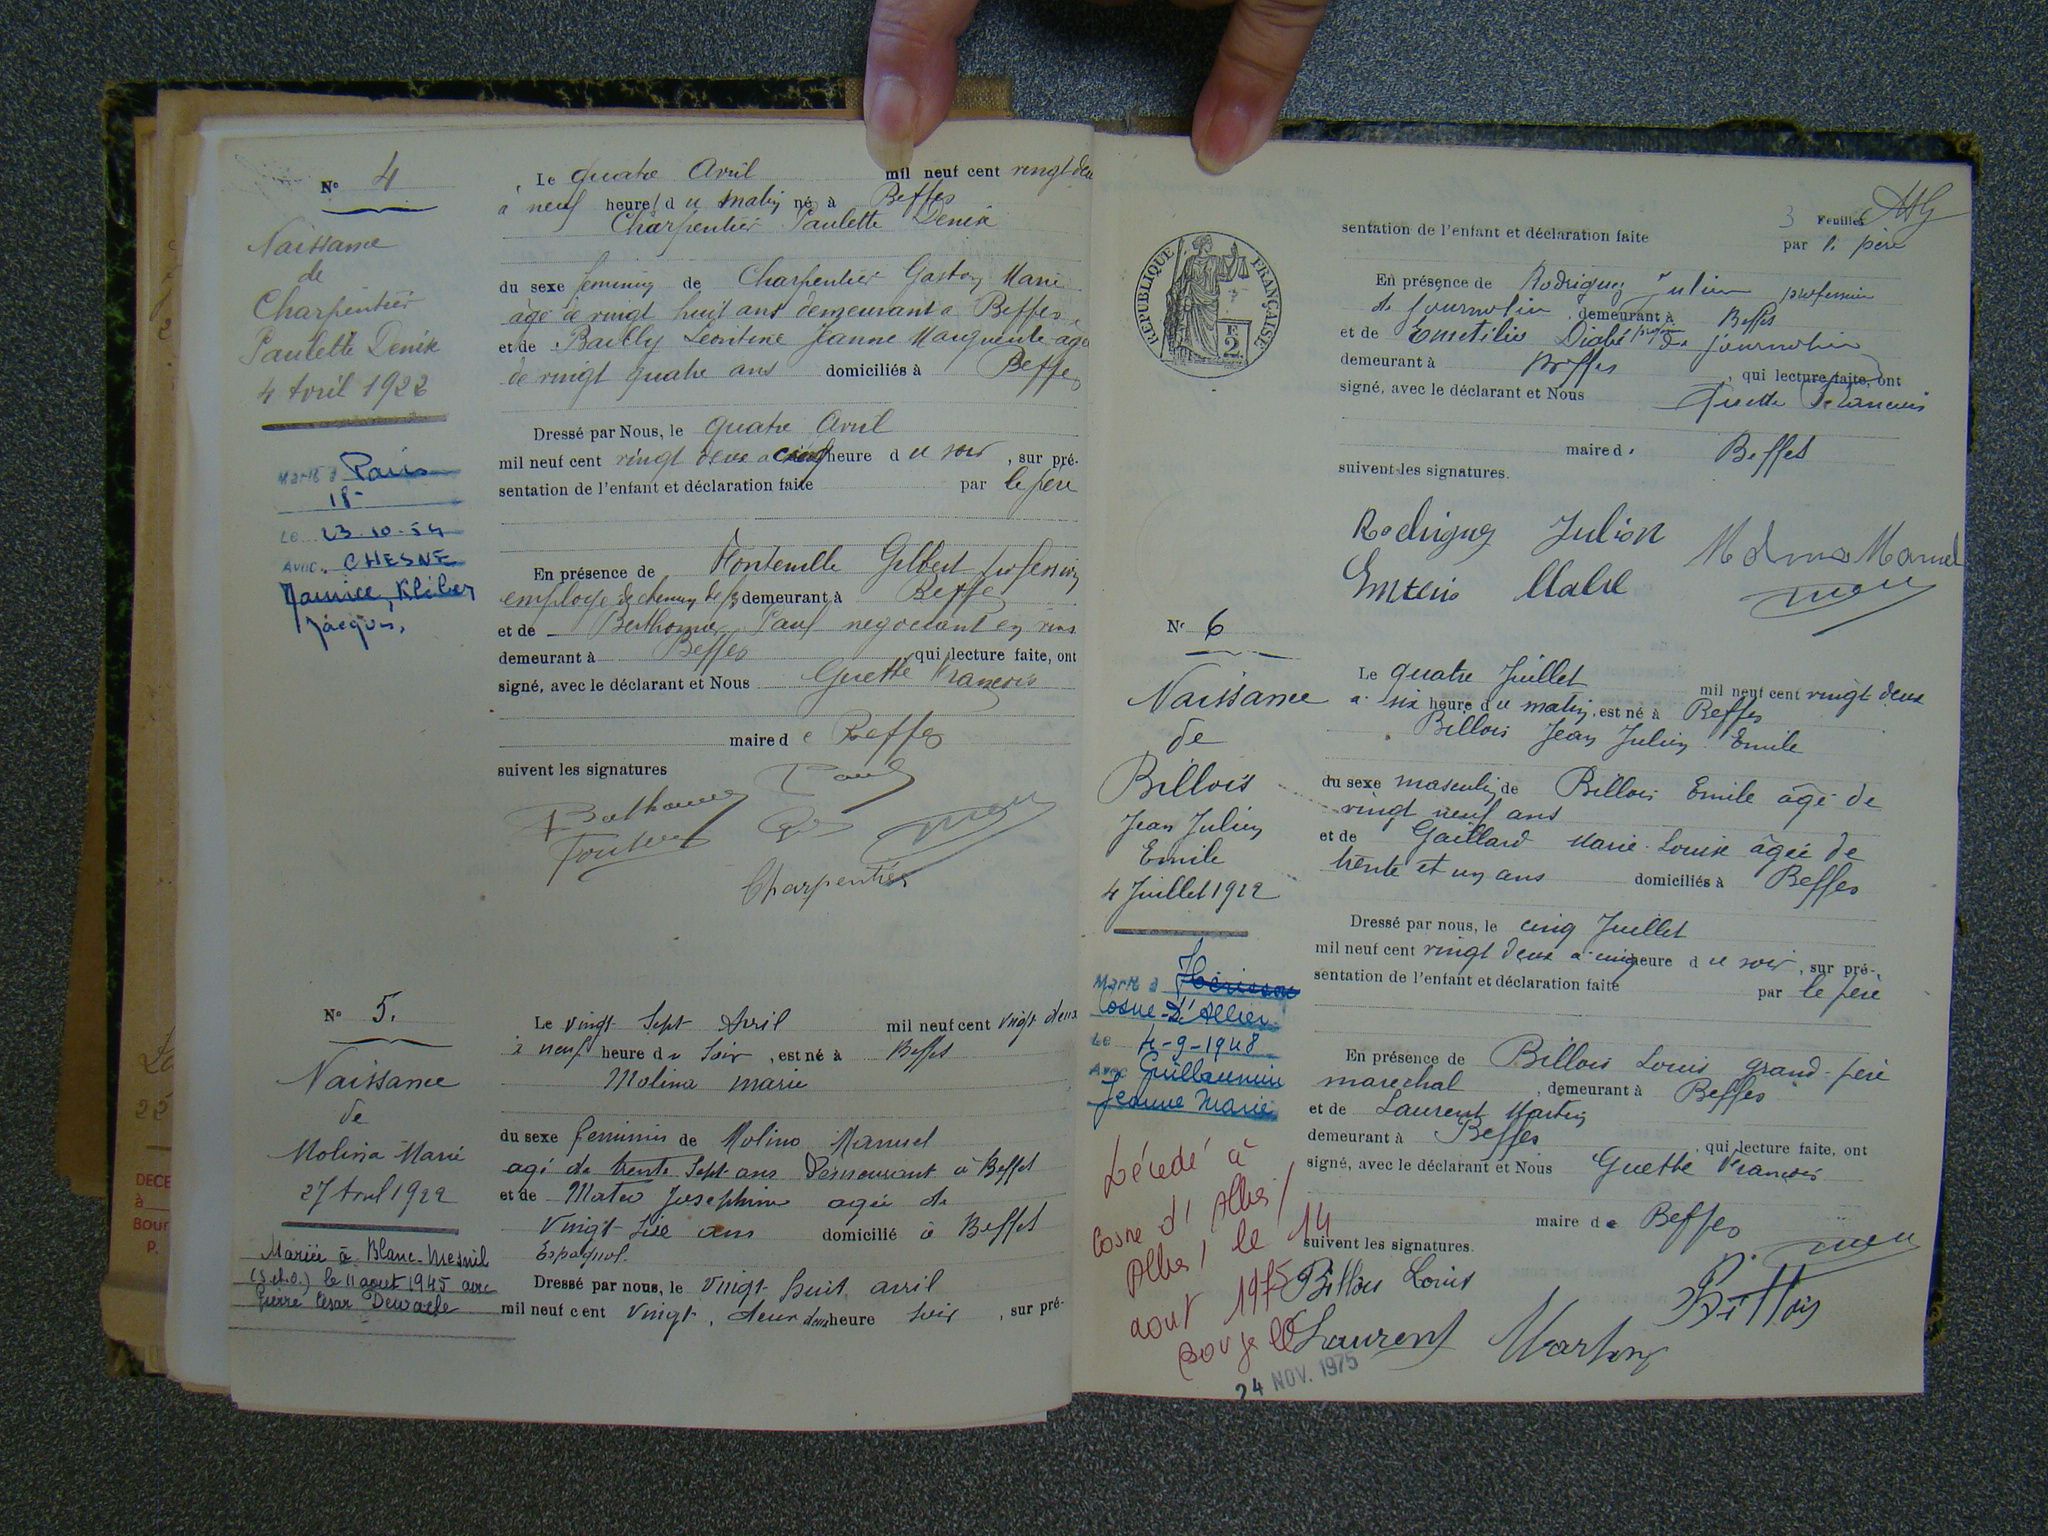 N° 4
Naissance
de
Charpentier
Paulette Denise
4 Avril 1922
Marié à Paris
18
Le 23-10-54
Avec CHESNE
Maurice, Kléber
Jacques,
Le quatre Avril mil neuf cent vingt deux
à neuf heures du matin né à Beffes
Charpentier Paulette Denise
du sexe feminin de Charpentier Gaston Marie
âgé de vingt huit ans demeurant à Beffes
et de Bailly Léontine Jeanne Marguerite âgée
de vingt quatre ans domiciliés à Beffes
Dressé par Nous, le quatre Avril
mil neuf cent vingt deux a cinq heure du soir, sur pré-
sentation de l'enfant et déclaration faite par le père
En présence de Fontenille Gilbert profession
employé de chemin de fer demeurant à Beffes
et de Berthomier Paul negociant en vins
demeurant à Beffes qui lecture faite, ont
signé, avec le déclarant et Nous Guette François
maire de Beffes
suivent les signatures
Paul
Charpentier
N° 5.
Naissance
de
Molina Marie
27 Avril 1922
Mariée à Blanc-Mesnil
(S.et.O.) le 11 aout 1945 avec
Pierre César
Le vingt Sept Avril mil neuf cent vingt deux
à neuf heure du Soir, est né à Beffes
Molina marie
du sexe feminin de Molina Manuel
agé de trente Sept ans Demeurant à Beffes
et de Mateo Josephine agée de
vingt Sise ans domicilié à Beffes
Espagnol.
Dressé par nous, le vingt huit avril
mil neuf cent vingt, deux deux heure soir, sur pré-
3 Feuillet
sentation de l'enfant et déclaration faite par le père
RÉPUBLIQUE FRANÇAISE
2 F
En présence de Rodriguez Julien profession
de journalier, demeurant à Beffes
et de journalier
demeurant à Beffes, qui lecture faite, ont
signé, avec le déclarant et Nous Guette François
maire de Beffes
suivent les signatures.
Rodriguez Julian
Manuel
N° 6
Naissance
de
Billois
Jean Julien
Emile
4 Juillet 1922
Marié à Hérisson
Cosne-D'Allier
Le 4-9-1948
Avec Guillaumin
Jeanne Marie
Décédé à
Cosne d'Allier
Allier le 14
aout 1975
24 NOV. 1975
Le quatre Juillet mil neuf cent vingt deux
à six heure du matin, est né à Beffes
Billois Jean Julien Emile
du sexe masculin de Billois Emile âgé de
vingt neuf ans
et de Gaillard Marie-Louise âgée de
trente et un ans domiciliés à Beffes
Dressé par nous, le cinq Juillet
mil neuf cent vingt deux à cinq heure du soir, sur pré-
sentation de l'enfant et déclaration faite par le père
En présence de Billois Louis grand-père
marechal, demeurant à Beffes
et de Laurent Martin
demeurant à Beffes, qui lecture faite, ont
signé, avec le déclarant et Nous Guette François
maire de Beffes
suivent les signatures.
Billois Louis
Billois
Laurent Martin